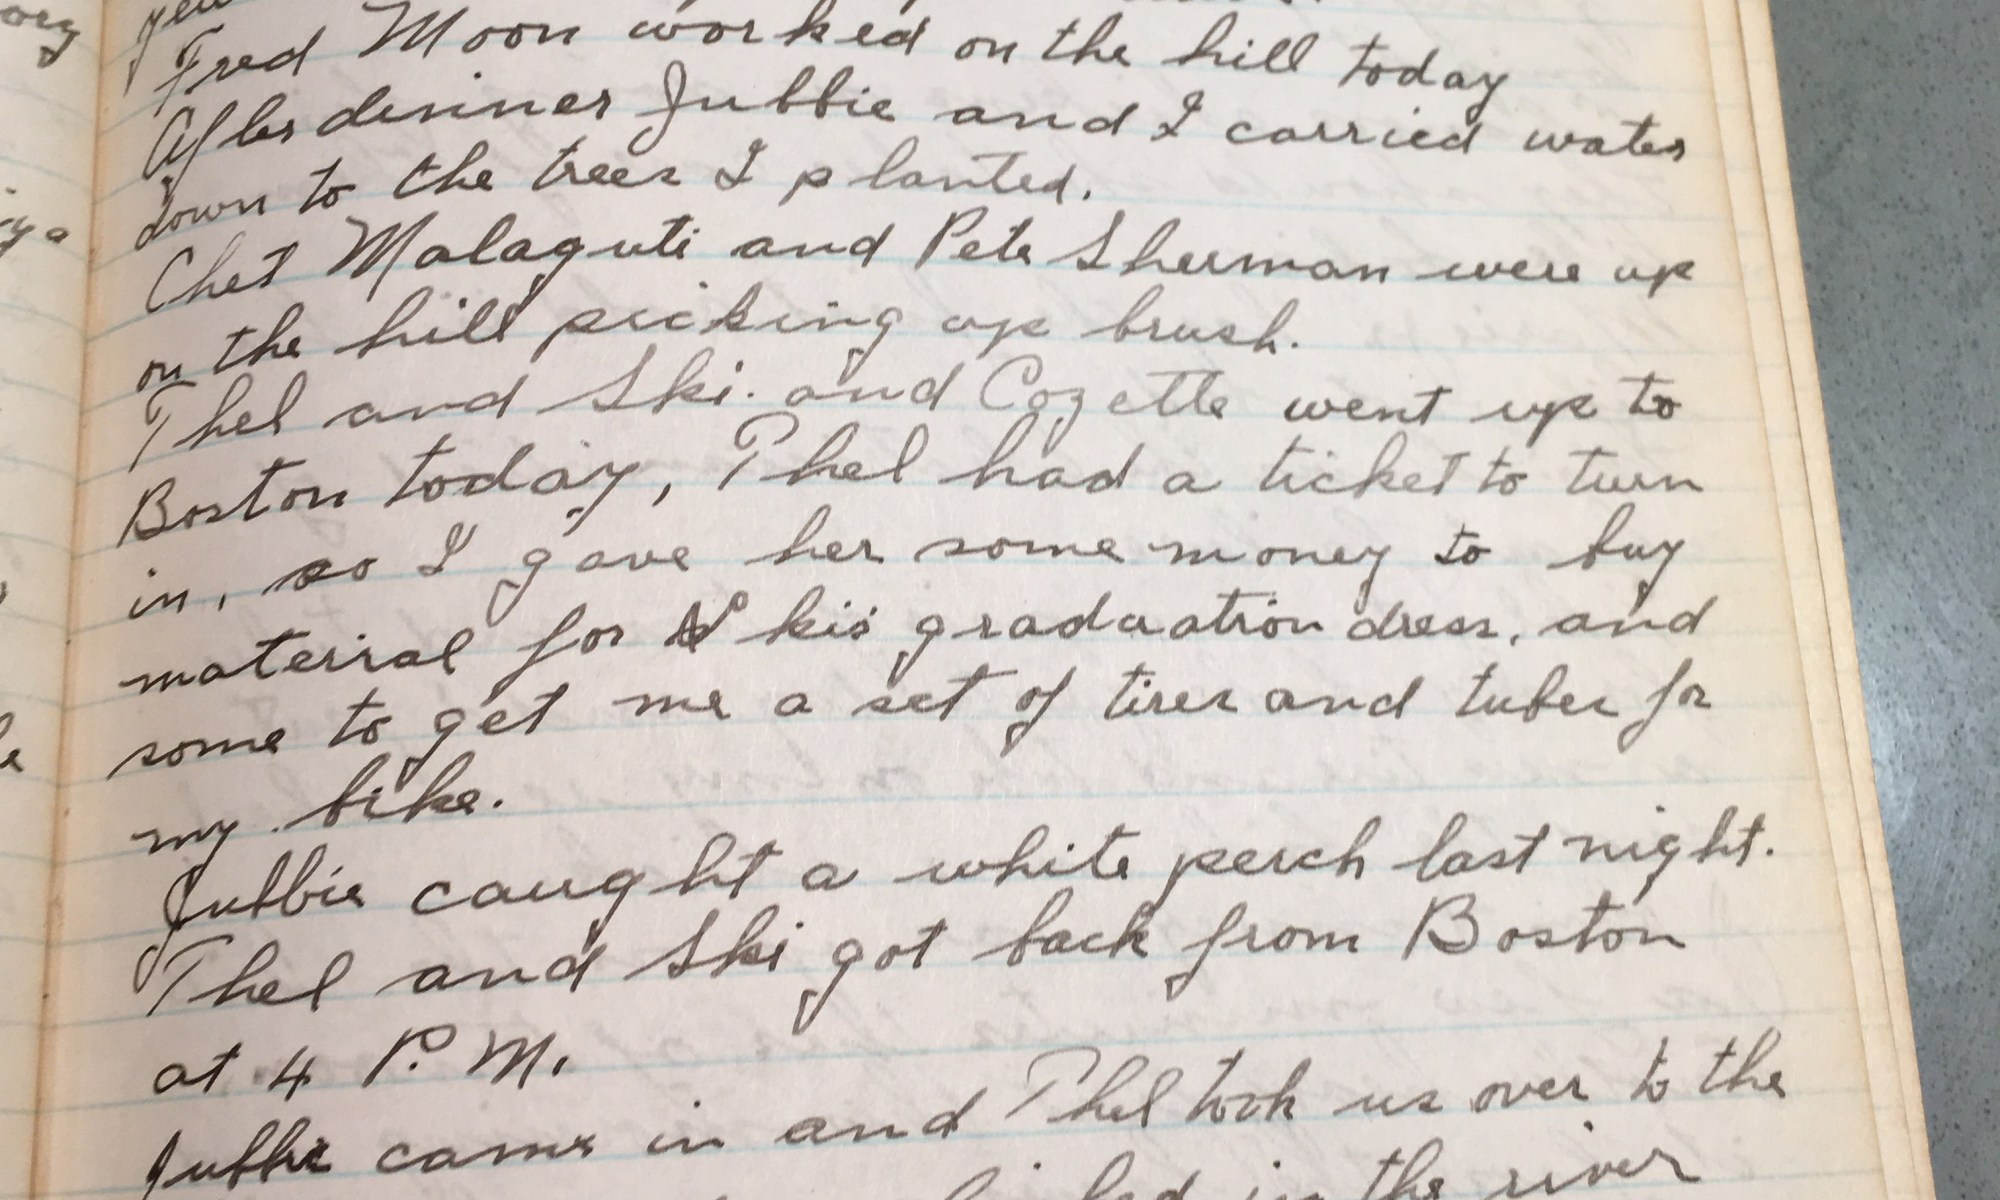 Fred Moon worked on the hill today
After dinner Jubbie and I carried water
down to the trees I planted.
Chet Malaguti and Pete Sherman were up
on the hill picking up brush.
Thel and Ski. and Cozette went up to
Boston today, Thel had a ticket to turn
in, so I gave her some money to buy
material for Ski's graduation dress, and
some to get me a set of tires and tubes for
my bike.
Jubbie caught a white perch last night.
Thel and Ski got back from Boston
at 4 P. M.
Jubbie came in and Thel took us over to the
in the river